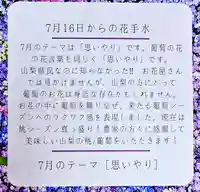 7月16日からの花手水
7月のテーマは「思いやり」です。葡萄の花
の花言葉も同じく「思いやり」です。
山梨県民なのに知らなかった!! お花屋さん
では見かけませんが、山梨の山にとって
葡萄のお花は身近な存在かもしれません。
お花の中に葡萄を飾り浮ばせ、来たる葡萄シーズ
ンへのワクワク感を表現しました。現在は
桃シーズン真っ盛り!農家の方々に感謝して
美味しい山梨の桃、葡萄をいただきます!
7月のテーマ [思いやり]